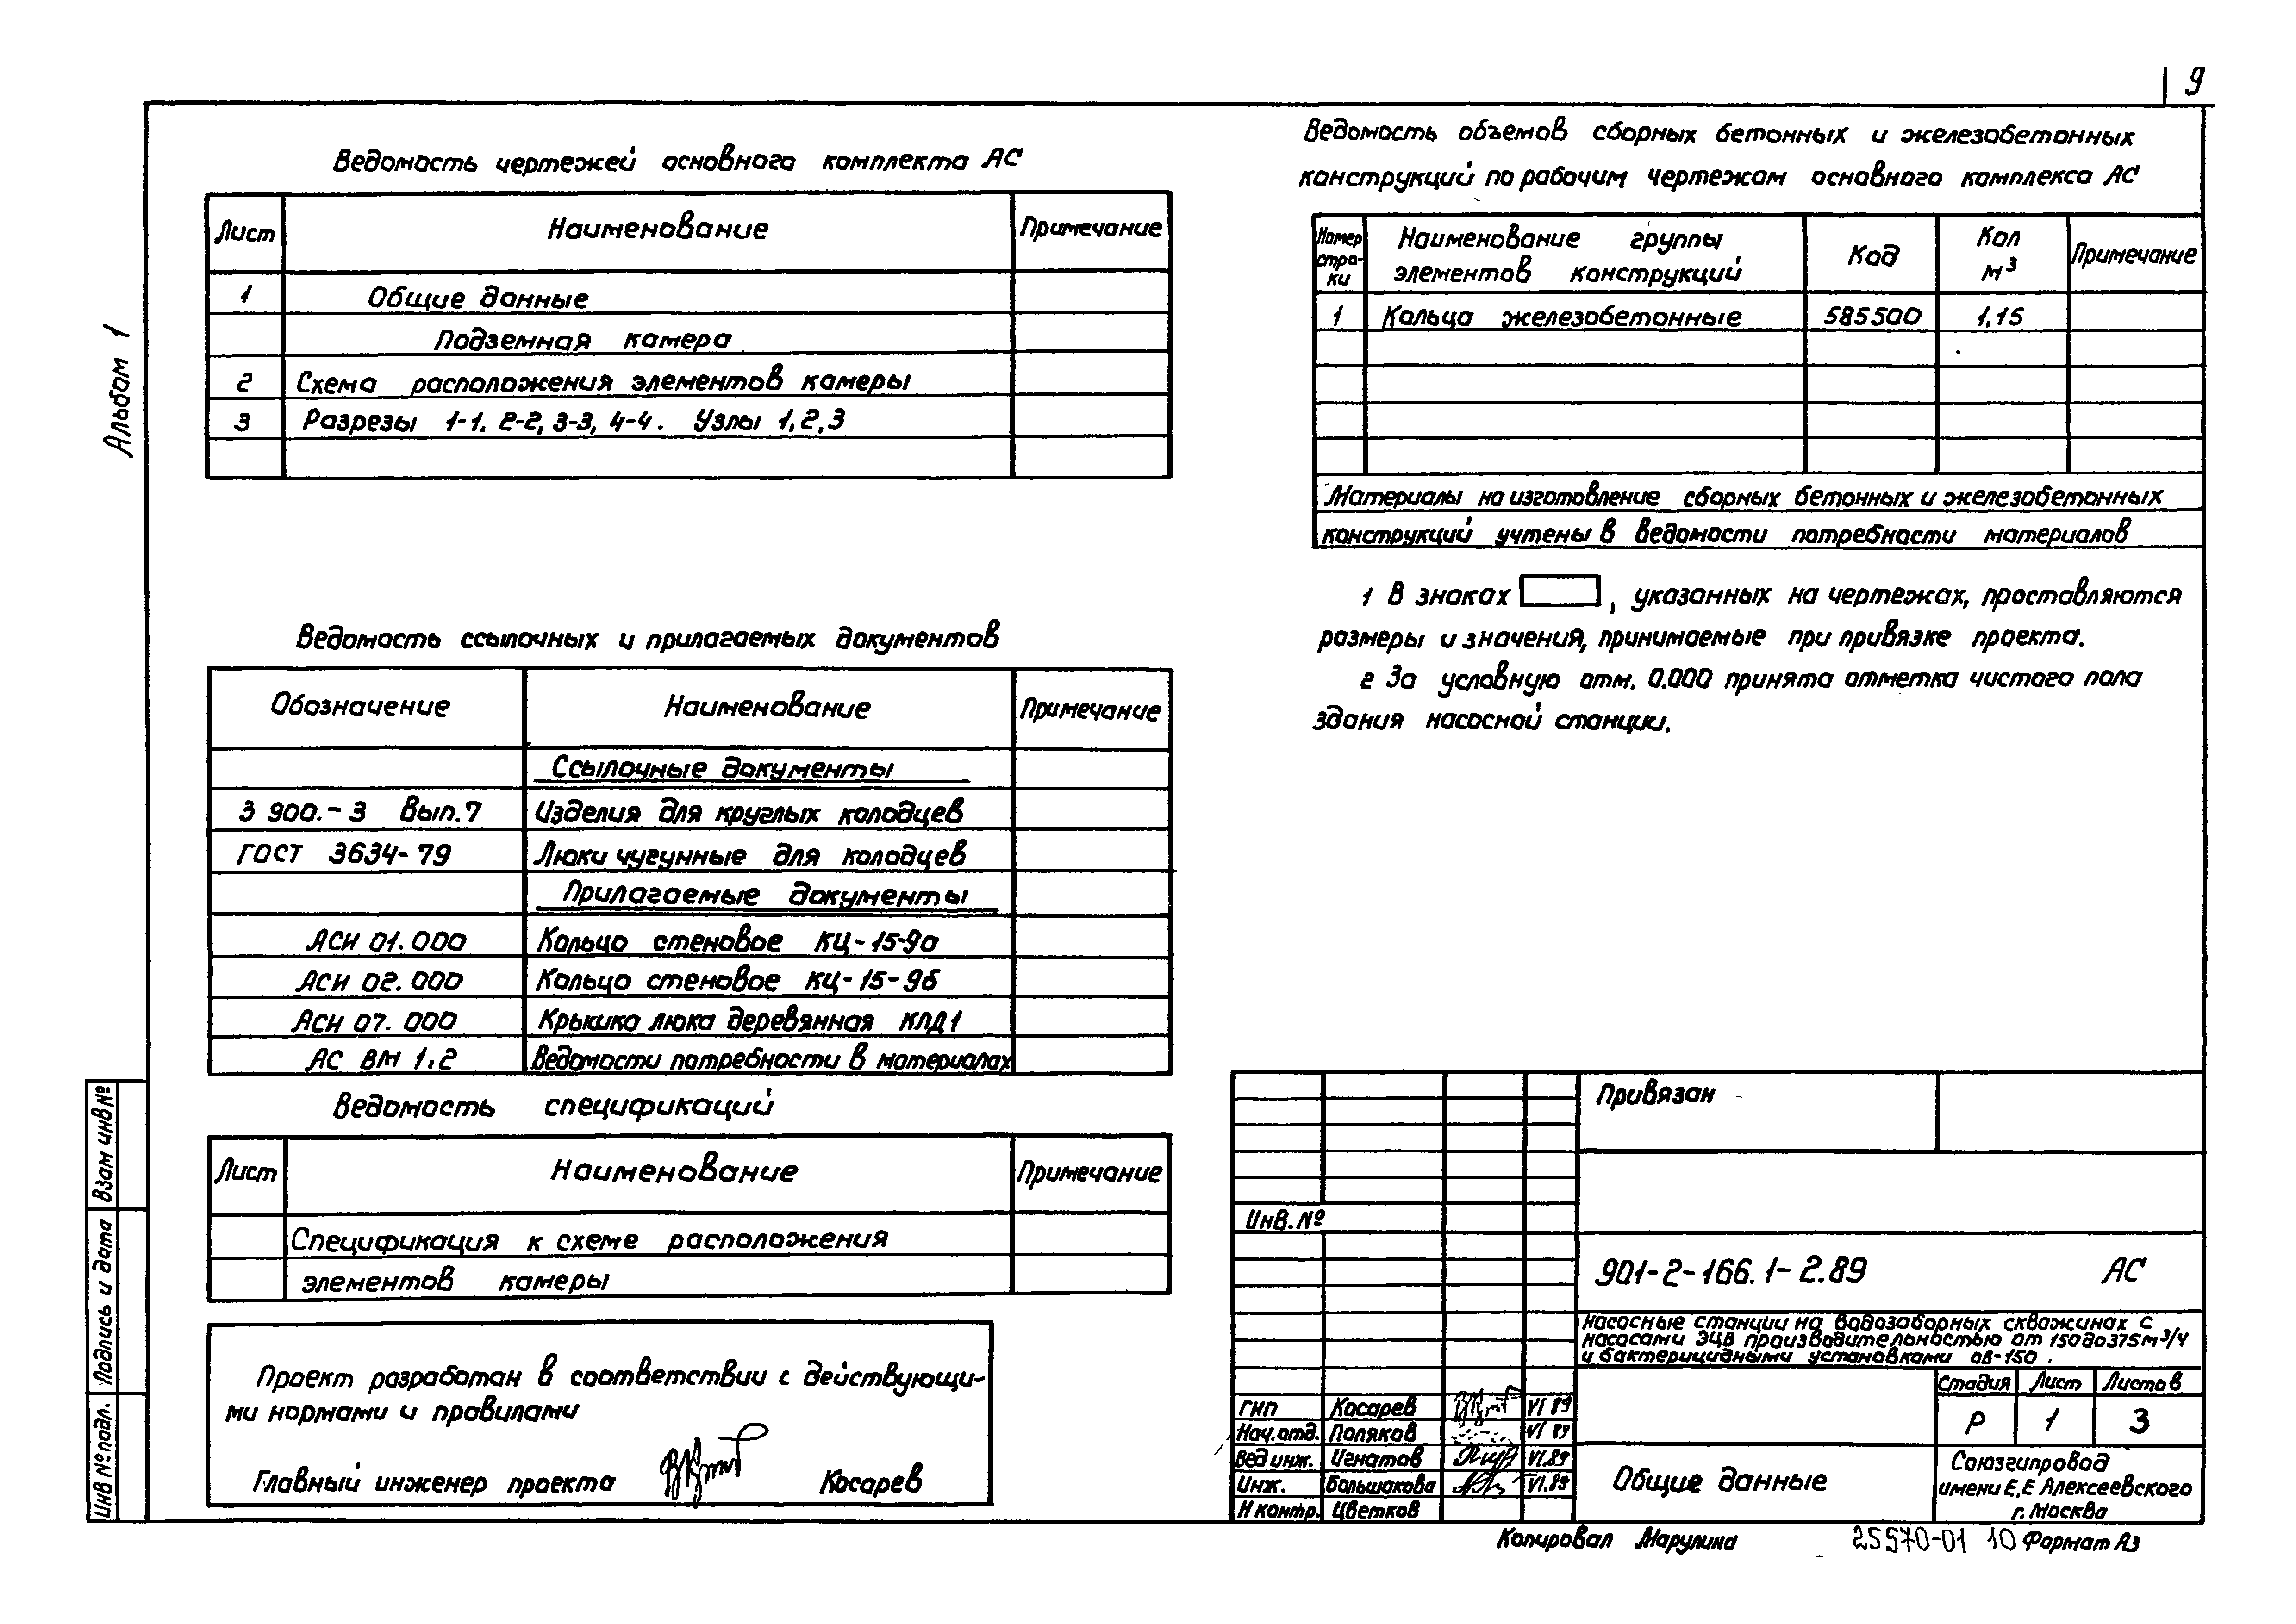 9
Альбом 1
Ведомость чертежей основного комплекта АС
Лист Наименование Примечание
1 Общие данные
Подземная камера
2 Схема расположения элементов камеры
3 Разрезы 1-1, 2-2, 3-3, 4-4. Узлы 1,2,3
Ведомость ссылочных и прилагаемых документов
Обозначение Наименование Примечание
Ссылочные документы
3 900.-3 Вып.7 Изделия для круглых колодцев
ГОСТ 3634-79 Люки чугунные для колодцев
Прилагаемые документы
АСИ 01.000 Кольцо стеновое КЦ-15-9а
АСИ 02.000 Кольцо стеновое КЦ-15-9б
АСИ 07.000 Крышка люка деревянная КЛД1
АС ВМ 1.2 Ведомости потребности в материалах
Ведомость спецификаций
Лист Наименование Примечание
Спецификация к схеме расположения
элементов камеры
Проект разработан в соответствии с действующи-
ми нормами и правилами
Главный инженер проекта Косарев
Ведомость объемов сборных бетонных и железобетонных
конструкций по рабочим чертежам основного комплекса АС
Номер строки Наименование группы элементов конструкций Код Кол м³ Примечание
1 Кольца железобетонные 585500 1,15
Материалы на изготовление сборных бетонных и железобетонных
конструкций учтены в ведомости потребности материалов
1 В знаках , указанных на чертежах, проставляются
размеры и значения, принимаемые при привязке проекта.
2 За условную отм. 0.000 принята отметка чистого пола
здания насосной станции.
Привязан
Инв.№
901-2-166.1-2.89 АС
Насосные станции на водозаборных скважинах с
насосами ЭЦВ производительностью от 150 до 375 м³/ч
и бактерицидными установками ОВ-150.
Стадия Лист Листов
Р 1 3
ГИП Косарев VI 89
Нач.отд. Поляков VI 89
Вед инж. Игнатов VI.89
Инж. Большакова VI.89
Н контр. Цветков
Общие данные
Союзгипровод
имени Е.Е Алексеевского
г. Москва
Копировал Марулина 25570-01 10 Формат А3
Взам инв №
Подпись и дата
Инв № подл.